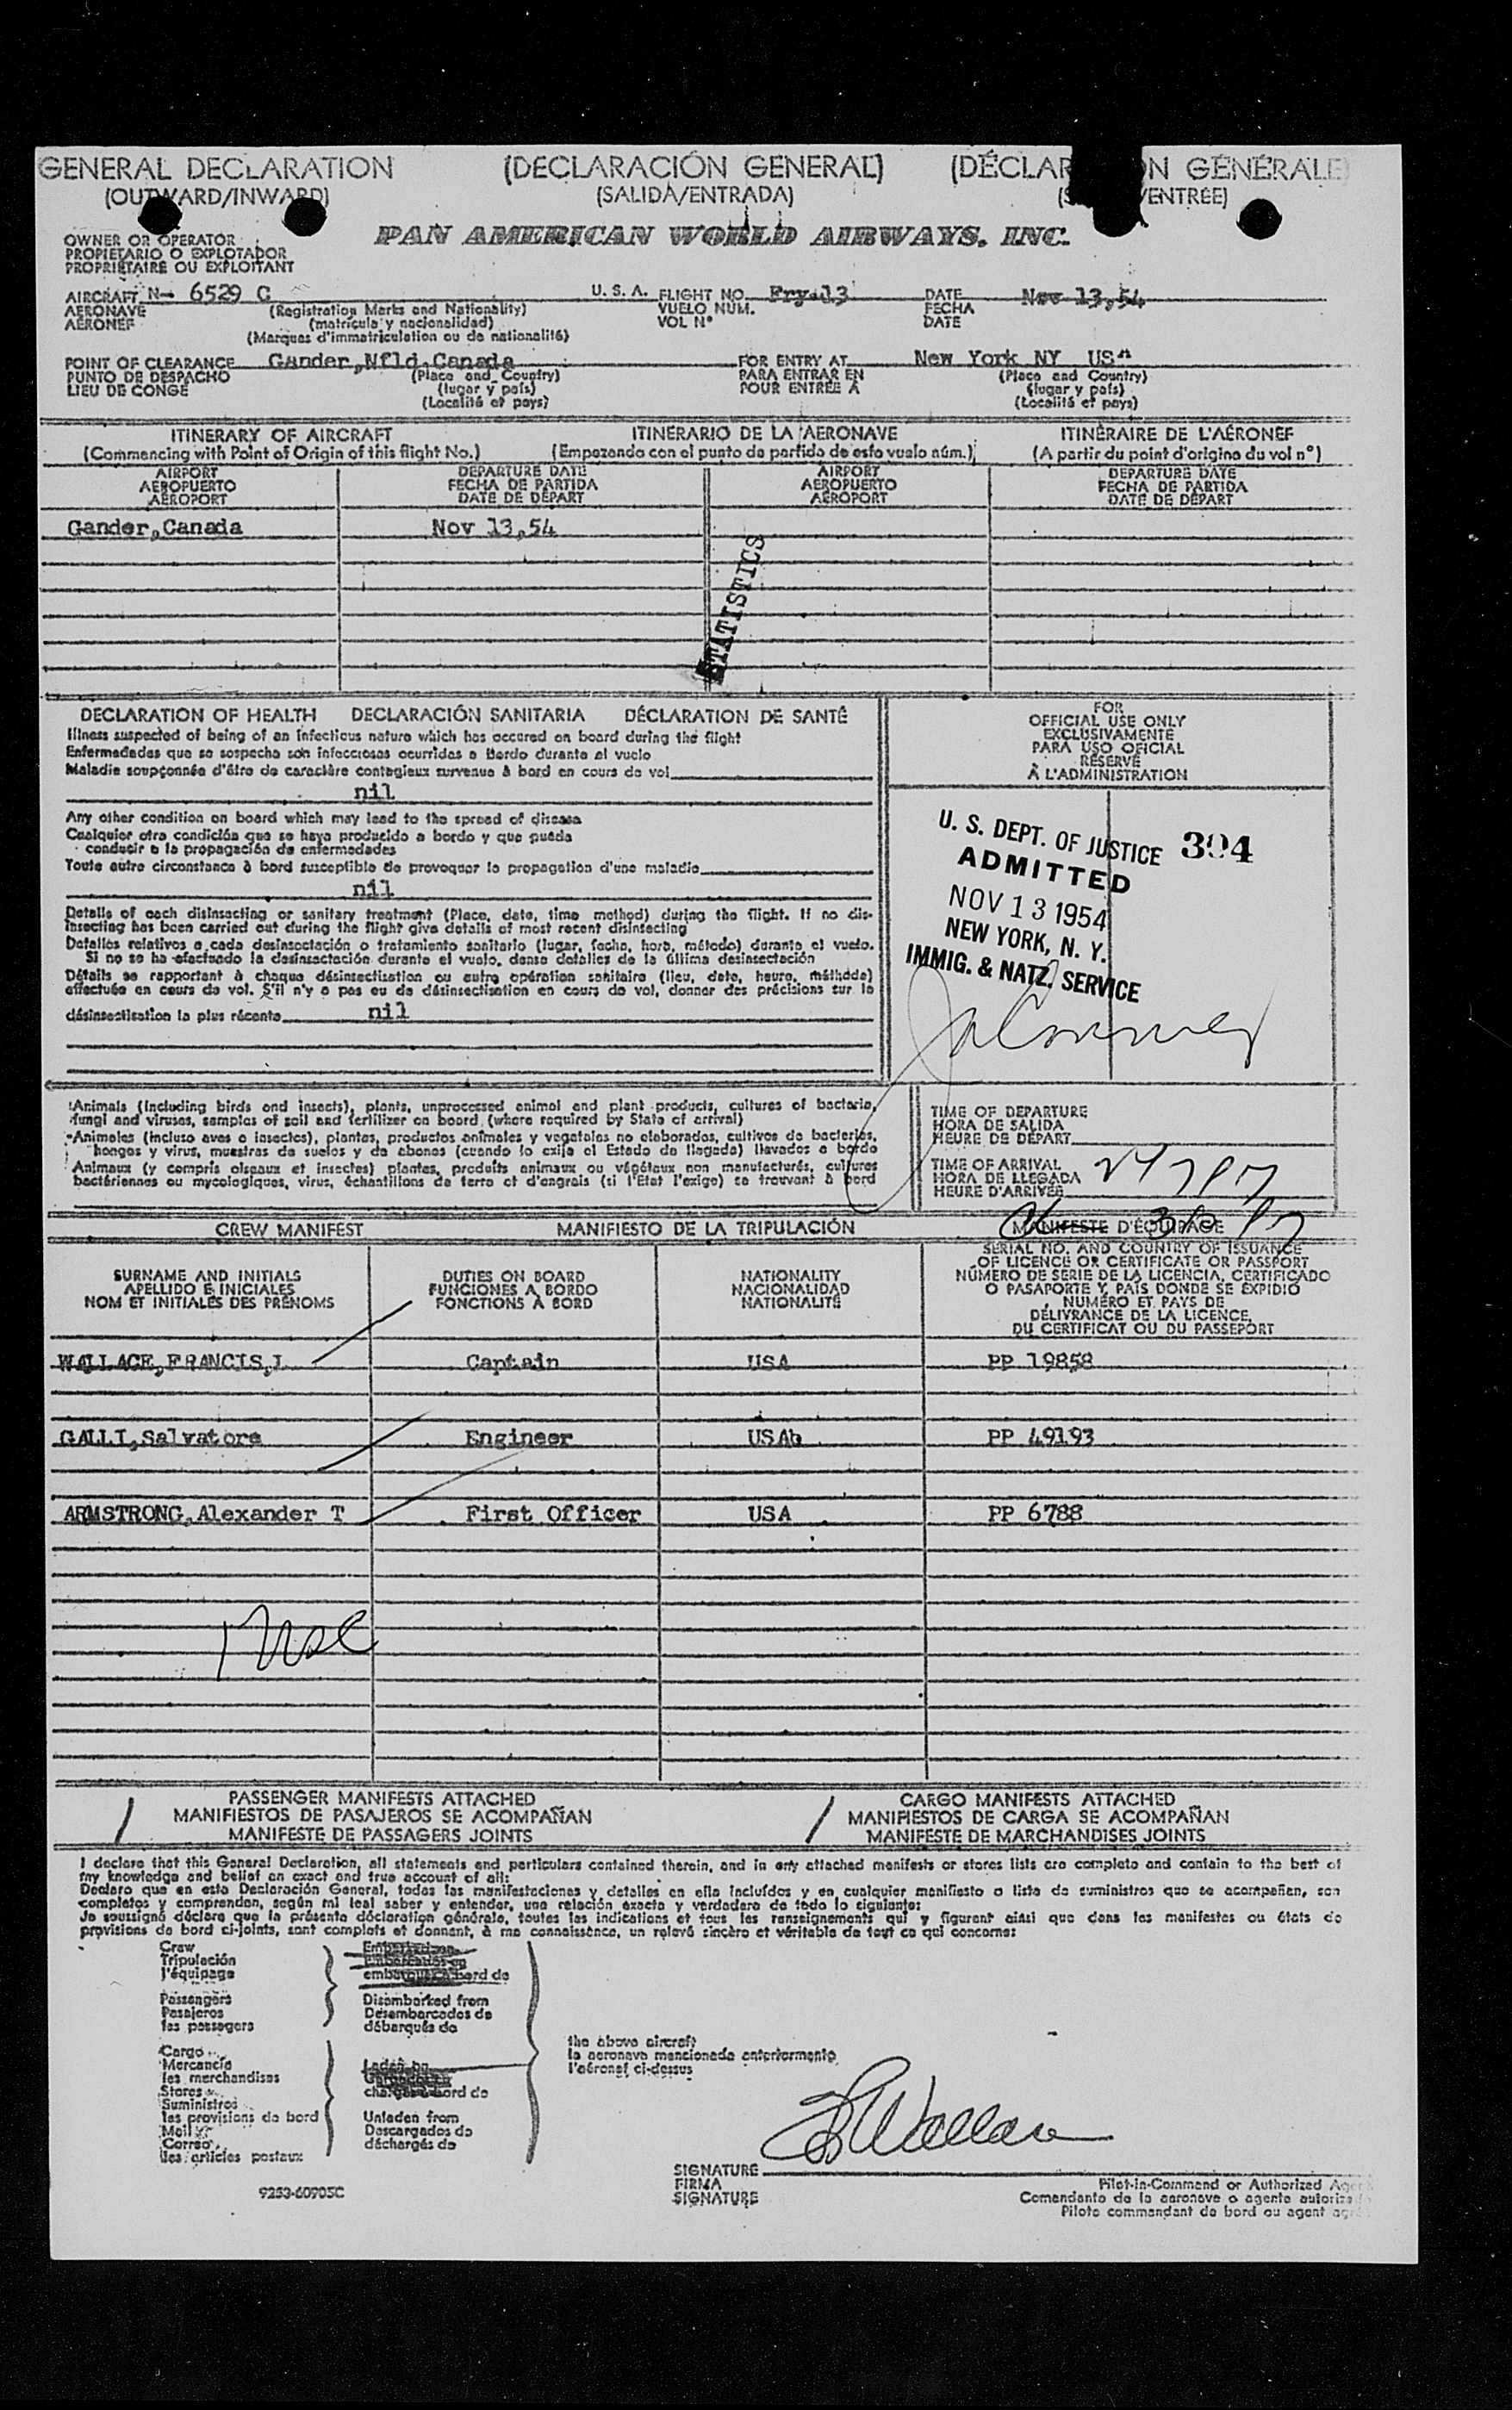 GENERAL DECLARATION (DECLARACIÓN GENERAL) (DÉCLAR N GÉNÉRALE)
(OUTWARD/INWARD) (SALIDA/ENTRADA) /ENTRÉE)
PAN AMERICAN WORLD AIRWAYS, INC.
OWNER OR OPERATOR
PROPIETARIO O EXPLOTADOR
PROPRIÉTAIRE OU EXPLOITANT
AIRCRAFT N- 6529 C U. S. A. FLIGHT NO. Fry-13 DATE Nov 13,54
AERONAVE (Registration Marks and Nationality) VUELO NUM. FECHA
AÉRONEF (matrícula y nacionalidad) VOL N° DATE
(Marques d'immatriculation ou de nationalité)
POINT OF CLEARANCE Gander,Nfld.Canada FOR ENTRY AT New York NY USA
PUNTO DE DESPACHO (Place and Country) PARA ENTRAR EN (Place and Country)
LIEU DE CONGÉ (lugar y país) POUR ENTRÉE À (lugar y país)
(Localité et pays) (Localité et pays)
ITINERARY OF AIRCRAFT ITINERARIO DE LA AERONAVE ITINÉRAIRE DE L'AÉRONEF
(Commencing with Point of Origin of this flight No.) (Empezando con el punto de partida de este vuelo núm.) (A partir du point d'origine du vol n°)
AIRPORT DEPARTURE DATE AIRPORT DEPARTURE DATE
AEROPUERTO FECHA DE PARTIDA AEROPUERTO FECHA DE PARTIDA
AÉROPORT DATE DE DÉPART AÉROPORT DATE DE DÉPART
Gander,Canada Nov 13,54
STATISTICS
DECLARATION OF HEALTH DECLARACIÓN SANITARIA DÉCLARATION DE SANTÉ
Illness suspected of being of an infectious nature which has occured on board during the flight
Enfermedades que se sospecha son infecciosas ocurridas a bordo durante el vuelo
Maladie soupçonnée d'être de caractère contagieux survenue à bord en cours de vol
nil
Any other condition on board which may lead to the spread of disease
Cualquier otra condición que se haya producido a bordo y que pueda
conducir a la propagación de enfermedades
Toute autre circonstance à bord susceptible de provoquer la propagation d'une maladie
nil
Details of each disinsecting or sanitary treatment (Place, date, time method) during the flight. If no dis-
insecting has been carried out during the flight give details of most recent disinsecting
Detalles relativos a cada desinsectación o tratamiento sanitario (lugar, fecha, hora, método) durante el vuelo.
Si no se ha efectuado la desinsectación durante el vuelo, dense detalles de la última desinsectación
Détails se rapportant à chaque désinsectisation ou autre opération sanitaire (lieu, date, heure, méthode)
effectuée en cours de vol. S'il n'y a pas eu de désinsectisation en cours de vol, donner des précisions sur la
désinsectisation la plus récente nil
FOR
OFFICIAL USE ONLY
EXCLUSIVAMENTE
PARA USO OFICIAL
RÉSERVÉ
À L'ADMINISTRATION
U. S. DEPT. OF JUSTICE 394
ADMITTED
NOV 13 1954
NEW YORK, N. Y.
IMMIG. & NATZ. SERVICE
Animals (including birds and insects), plants, unprocessed animal and plant products, cultures of bacteria,
fungi and viruses, samples of soil and fertilizer on board (where required by State of arrival)
Animales (incluso aves e insectos), plantas, productos animales y vegetales no elaborados, cultivos de bacterias,
hongos y virus, muestras de suelos y de abonos (cuando lo exija el Estado de llegada) llevados a bordo
Animaux (y compris oiseaux et insectes) plantes, produits animaux ou végétaux non manufacturés, cultures
bactériennes ou mycologiques, virus, échantillons de terre et d'engrais (si l'Etat l'exige) se trouvant à bord
TIME OF DEPARTURE
HORA DE SALIDA
HEURE DE DÉPART
TIME OF ARRIVAL
HORA DE LLEGADA
HEURE D'ARRIVÉE
CREW MANIFEST MANIFIESTO DE LA TRIPULACIÓN MANIFESTE D'ÉQUIPAGE
SURNAME AND INITIALS
APELLIDO E INICIALES
NOM ET INITIALES DES PRÉNOMS
DUTIES ON BOARD
FUNCIONES A BORDO
FONCTIONS À BORD
NATIONALITY
NACIONALIDAD
NATIONALITÉ
SERIAL NO. AND COUNTRY OF ISSUANCE
OF LICENCE OR CERTIFICATE OR PASSPORT
NÚMERO DE SERIE DE LA LICENCIA, CERTIFICADO
O PASAPORTE Y PAÍS DONDE SE EXPIDIÓ
NUMÉRO ET PAYS DE
DÉLIVRANCE DE LA LICENCE,
DU CERTIFICAT OU DU PASSEPORT
WALLACE,FRANCIS,J Captain USA PP 19858
GALLI,Salvatore Engineer USAb PP 49193
ARMSTRONG,Alexander T First Officer USA PP 6788
PASSENGER MANIFESTS ATTACHED CARGO MANIFESTS ATTACHED
MANIFIESTOS DE PASAJEROS SE ACOMPAÑAN MANIFIESTOS DE CARGA SE ACOMPAÑAN
MANIFESTE DE PASSAGERS JOINTS MANIFESTE DE MARCHANDISES JOINTS
I declare that this General Declaration, all statements and particulars contained therein, and in any attached manifests or stores lists are complete and contain to the best of
my knowledge and belief an exact and true account of all:
Declaro que en esta Declaración General, todas las manifestaciones y detalles en ella incluídos y en cualquier manifiesto o lista de suministros que se acompañen, son
completos y comprenden, según mi leal saber y entender, una relación exacta y verdadera de todo lo siguiente:
Je soussigné déclare que la présente déclaration générale, toutes les indications et tous les renseignements qui y figurent ainsi que dans les manifestes ou états de
provisions de bord ci-joints, sont complets et donnent, à ma connaissance, un relevé sincère et véritable de tout ce qui concerne:
Crew
Tripulación
l'équipage
Passengers
Pasajeros
les passagers
Disembarked from
Desembarcados de
débarqués de
Cargo
Mercancía
les merchandises
Stores
Suministros
les provisions de bord
Mail
Correo
les articles postaux
Unladen from
Descargados de
déchargés de
the above aircraft
la aeronave mencionada anteriormente
l'aéronef ci-dessus
Wallace
SIGNATURE
FIRMA
SIGNATURE
Pilot-in-Command or Authorized
Comandante de la aeronave o agente
Pilote commandant de bord ou agent
9253-60905C